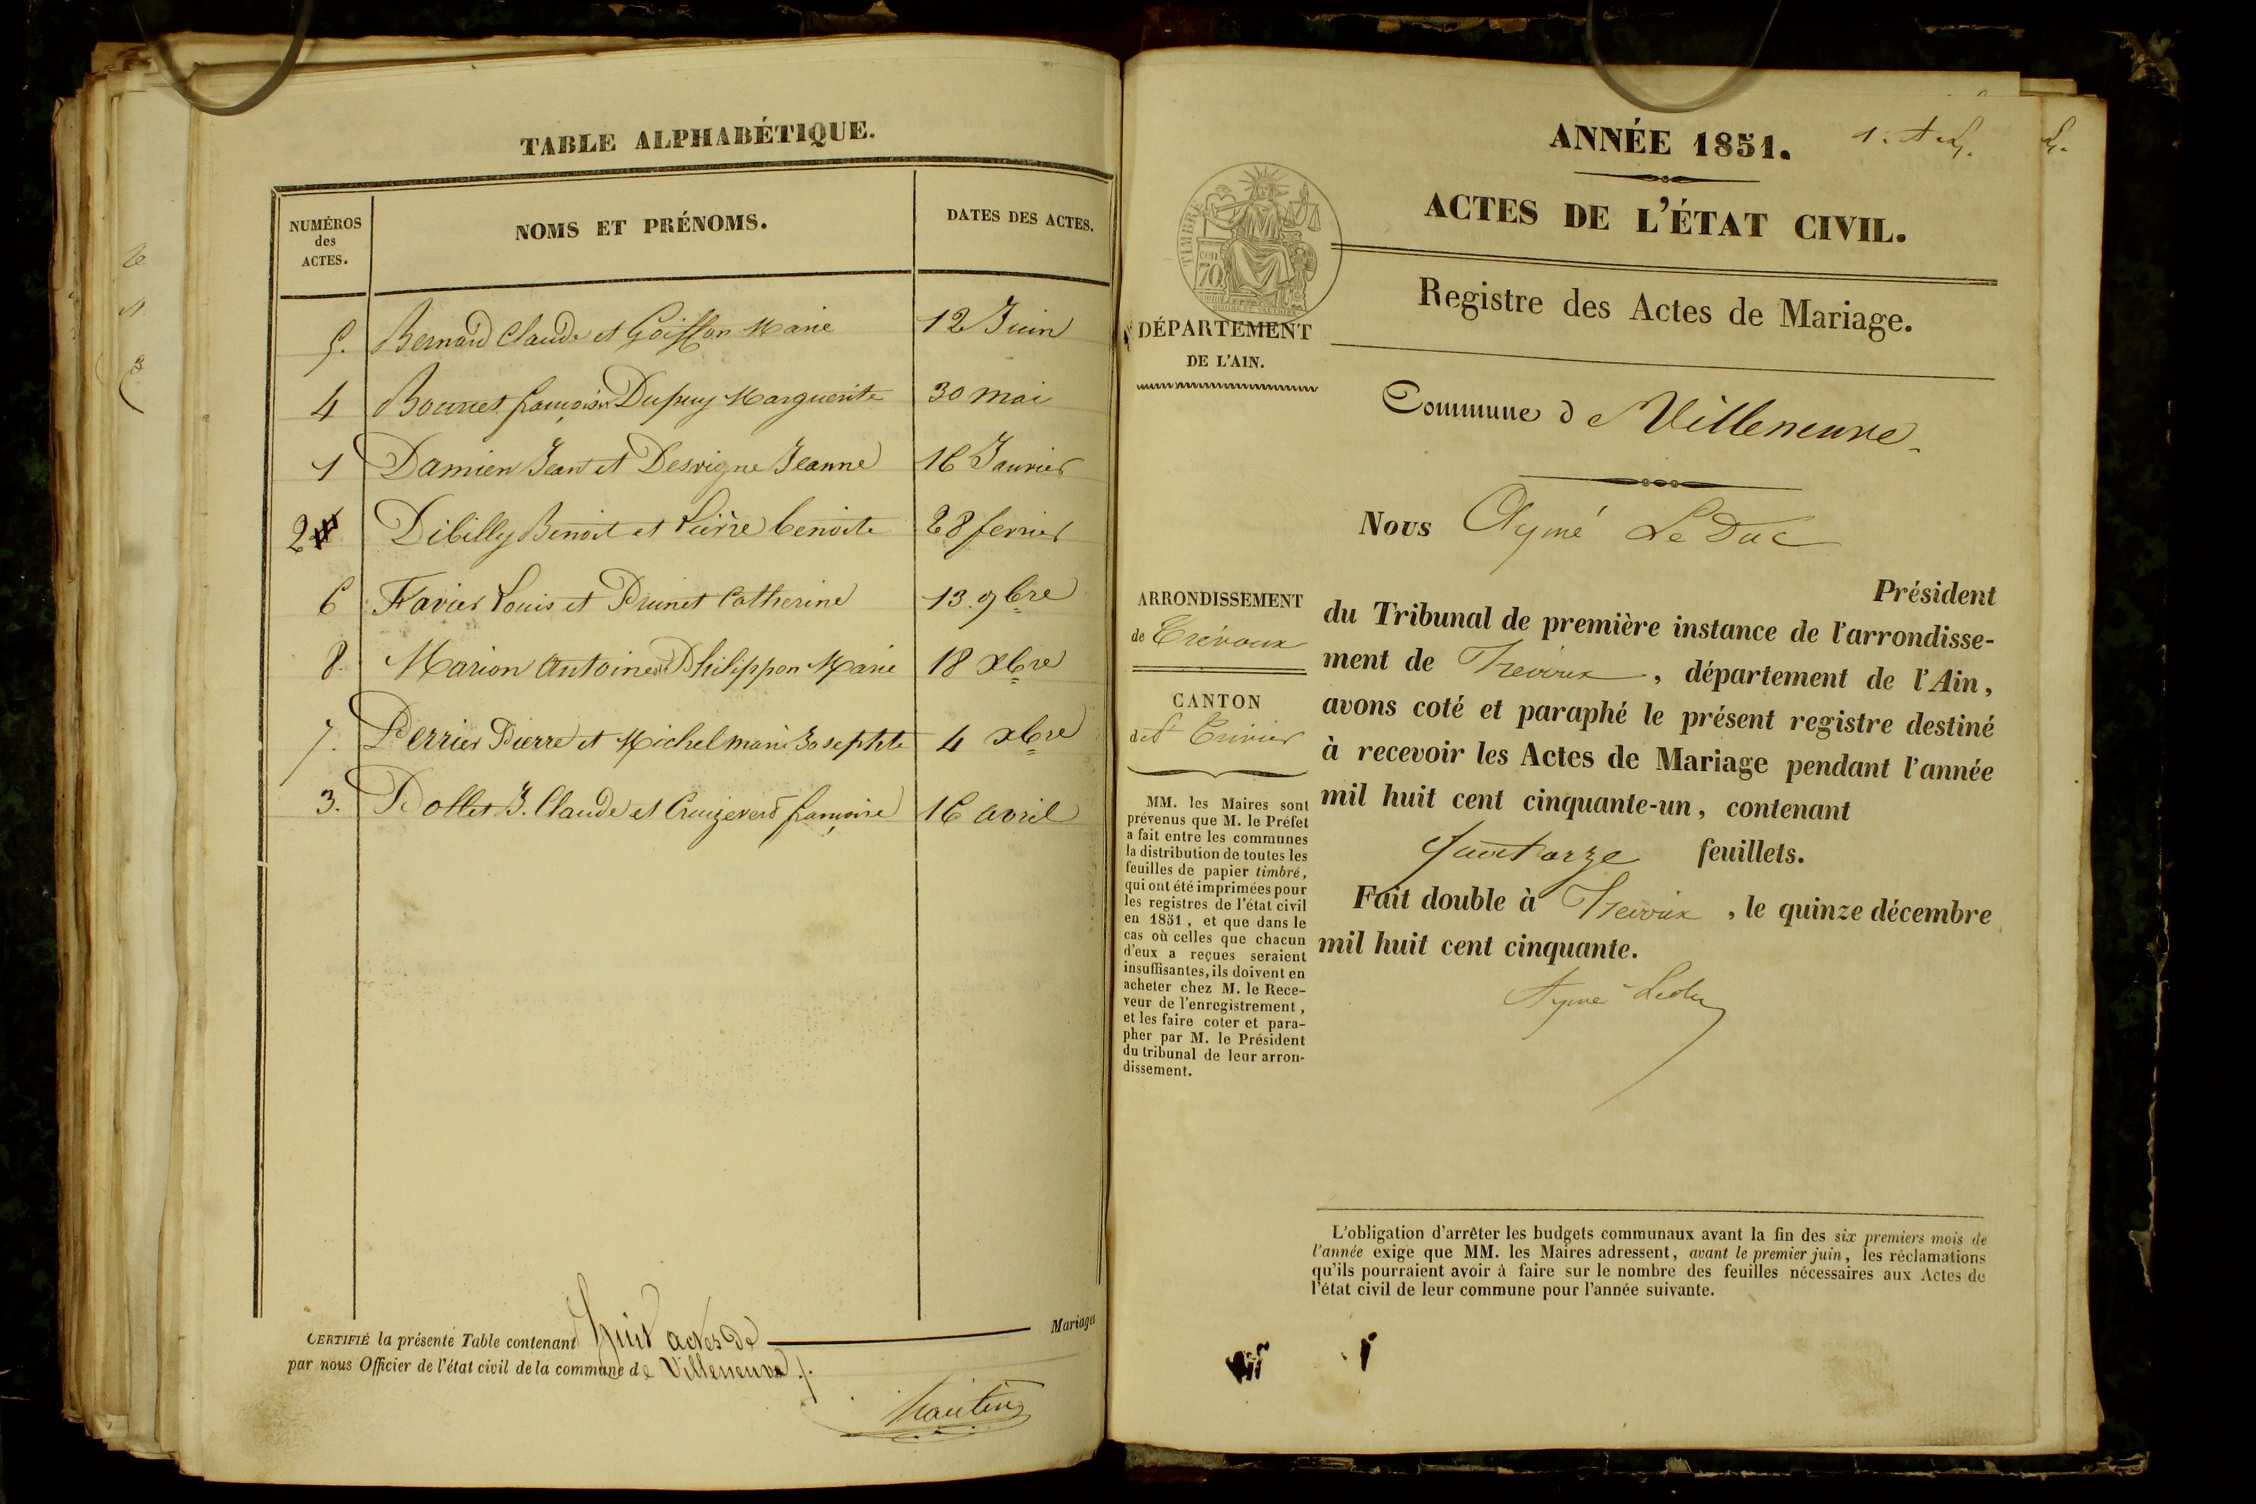 TABLE ALPHABÉTIQUE.
NUMÉROS
des
ACTES.
NOMS ET PRÉNOMS.
DATES DES ACTES.
5. Bernard Claude et Goiffon Marie 12 Juin
4 Bouvet françois et Dupuy Marguerite 30 mai
1 Damien Jean et Desvigne Jeanne 16 Janvier
2 Dibilly Benoit et benoite 28 fevrier
6 Favier Louis et Prunet Catherine 13. 9bre
8. Marion Antoine et Philippon Marie 18 xbre
7. Perrier Pierre et Michel marie Josephte 4 xbre
3. Pollet J. Claude et françoise 16 avril
CERTIFIÉ la présente Table contenant huit actes de Mariages
par nous Officier de l'état civil de la commune de Villeneuve
ANNÉE 1851.
1.
ACTES DE L'ÉTAT CIVIL.
TIMBRE
70
Registre des Actes de Mariage.
DÉPARTEMENT
DE L'AIN.
Commune de Villeneuve
Nous Aymé Le Duc
Président
du Tribunal de première instance de l'arrondisse-
ment de Trevoux, département de l'Ain,
avons coté et paraphé le présent registre destiné
à recevoir les Actes de Mariage pendant l'année
mil huit cent cinquante-un, contenant
feuillets.
Fait double à Trevoux, le quinze décembre
mil huit cent cinquante.
Aymé Leduc
ARRONDISSEMENT
de Trévoux
CANTON
de St Trivier
MM. les Maires sont
prévenus que M. le Préfet
a fait entre les communes
la distribution de toutes les
feuilles de papier timbré,
qui ont été imprimées pour
les registres de l'état civil
en 1851, et que dans le
cas où celles que chacun
d'eux a reçues seraient
insuffisantes, ils doivent en
acheter chez M. le Rece-
veur de l'enregistrement,
et les faire coter et para-
pher par M. le Président
du tribunal de leur arron-
dissement.
L'obligation d'arrêter les budgets communaux avant la fin des six premiers mois de
l'année exige que MM. les Maires adressent, avant le premier juin, les réclamations
qu'ils pourraient avoir à faire sur le nombre des feuilles nécessaires aux Actes de
l'état civil de leur commune pour l'année suivante.